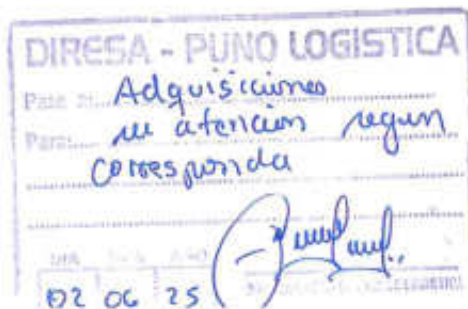 DIRESA - PUNO LOGISTICA
Pase a: Adquisiciones
Para: su atencion segun
corresponda
DIA MES AÑO
02 06 25